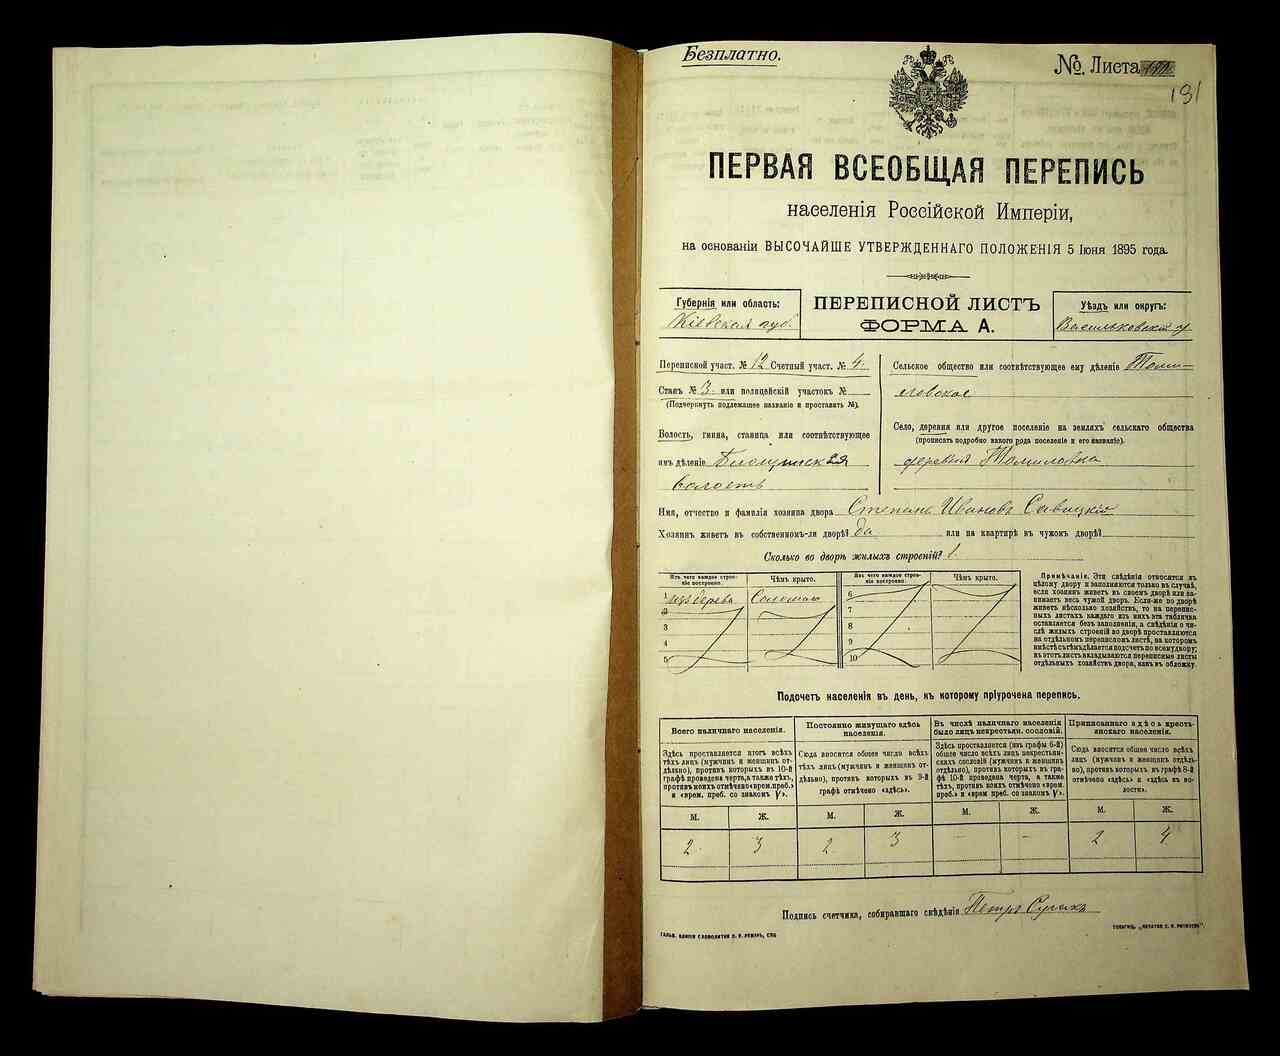 Безплатно.
№. Листа
191
ПЕРВАЯ ВСЕОБЩАЯ ПЕРЕПИСЬ
населенія Россійской Имперіи,
на основаніи ВЫСОЧАЙШЕ УТВЕРЖДЕННАГО ПОЛОЖЕНІЯ 5 Іюня 1895 года.
Губернія или область:
Кіевская губ.
ПЕРЕПИСНОЙ ЛИСТЪ
ФОРМА А.
Уѣздъ или округъ:
Васильковскій у.
Переписной участ. № 12 Счетный участ. № 4.
Станъ № 3. или полицейскій участокъ №
(Подчеркнуть подлежащее названіе и проставить №).
Волость, гмина, станица или соотвѣтствующее
имъ дѣленіе
волость
Сельское общество или соотвѣтствующее ему дѣленіе Томи-
ловское
Село, деревня или другое поселеніе на земляхъ сельскаго общества
(прописать подробно какого рода поселеніе и его названіе).
деревня Томиловка
Имя, отчество и фамилія хозяина двора Степанъ Ивановъ Савицкій
Хозяинъ живетъ въ собственномъ-ли дворѣ? да или на квартирѣ въ чужомъ дворѣ?
Сколько во дворѣ жилыхъ строеній? 1.
Изъ чего каждое строеніе построено. Чѣмъ крыто. Изъ чего каждое строеніе построено. Чѣмъ крыто.
1 изъ дерева Соломою 6
2 7
3 8
4 9
5 10
Примѣчаніе. Эти свѣдѣнія относятся къ
цѣлому двору и заполняются только въ случаѣ,
если хозяинъ живетъ въ своемъ дворѣ или занимаетъ весь чужой дворъ. Если-же во дворѣ
живетъ нѣсколько хозяйствъ, то на переписныхъ листахъ каждаго изъ нихъ эта табличка
оставляется безъ заполненія, а свѣдѣнія о числѣ жилыхъ строеній во дворѣ проставляются
на отдѣльномъ переписномъ листѣ, на которомъ
вмѣстѣ съ тѣмъ дѣлается подсчетъ по всему двору;
въ этотъ листъ вкладываются переписные листы
отдѣльныхъ хозяйствъ двора, какъ въ обложку.
Подсчетъ населенія въ день, къ которому пріурочена перепись.
Всего наличнаго населенія.
Здѣсь проставляется итогъ всѣхъ
тѣхъ лицъ (мужчинъ и женщинъ отдѣльно), противъ которыхъ въ 10-й
графѣ проведена черта, а также тѣхъ,
противъ коихъ отмѣчено «врем. преб.»
и «врем. преб. со знакомъ V».
Постоянно живущаго здѣсь
населенія.
Сюда вносится общее число всѣхъ
тѣхъ лицъ (мужчинъ и женщинъ отдѣльно), противъ которыхъ въ 9-й
графѣ отмѣчено «здѣсь».
Въ числѣ наличнаго населенія
было лицъ некрестьян. сословій.
Здѣсь проставляется (изъ графы 6-й)
общее число всѣхъ лицъ некрестьянскихъ сословій (мужчинъ и женщинъ
отдѣльно), противъ которыхъ въ графѣ 10-й проведена черта, а также
тѣхъ, противъ коихъ отмѣчено «врем.
преб.» и «врем. преб. со знакомъ V».
Приписаннаго здѣсь крестьянскаго населенія.
Сюда вносится общее число всѣхъ
лицъ (мужчинъ и женщинъ отдѣльно), противъ которыхъ въ графѣ 8-й
отмѣчено «здѣсь» и «здѣсь въ волости».
М. Ж. М. Ж. М. Ж. М. Ж.
2 3 2 3 – – 2 4
Подпись счетчика, собиравшаго свѣдѣнія Петръ